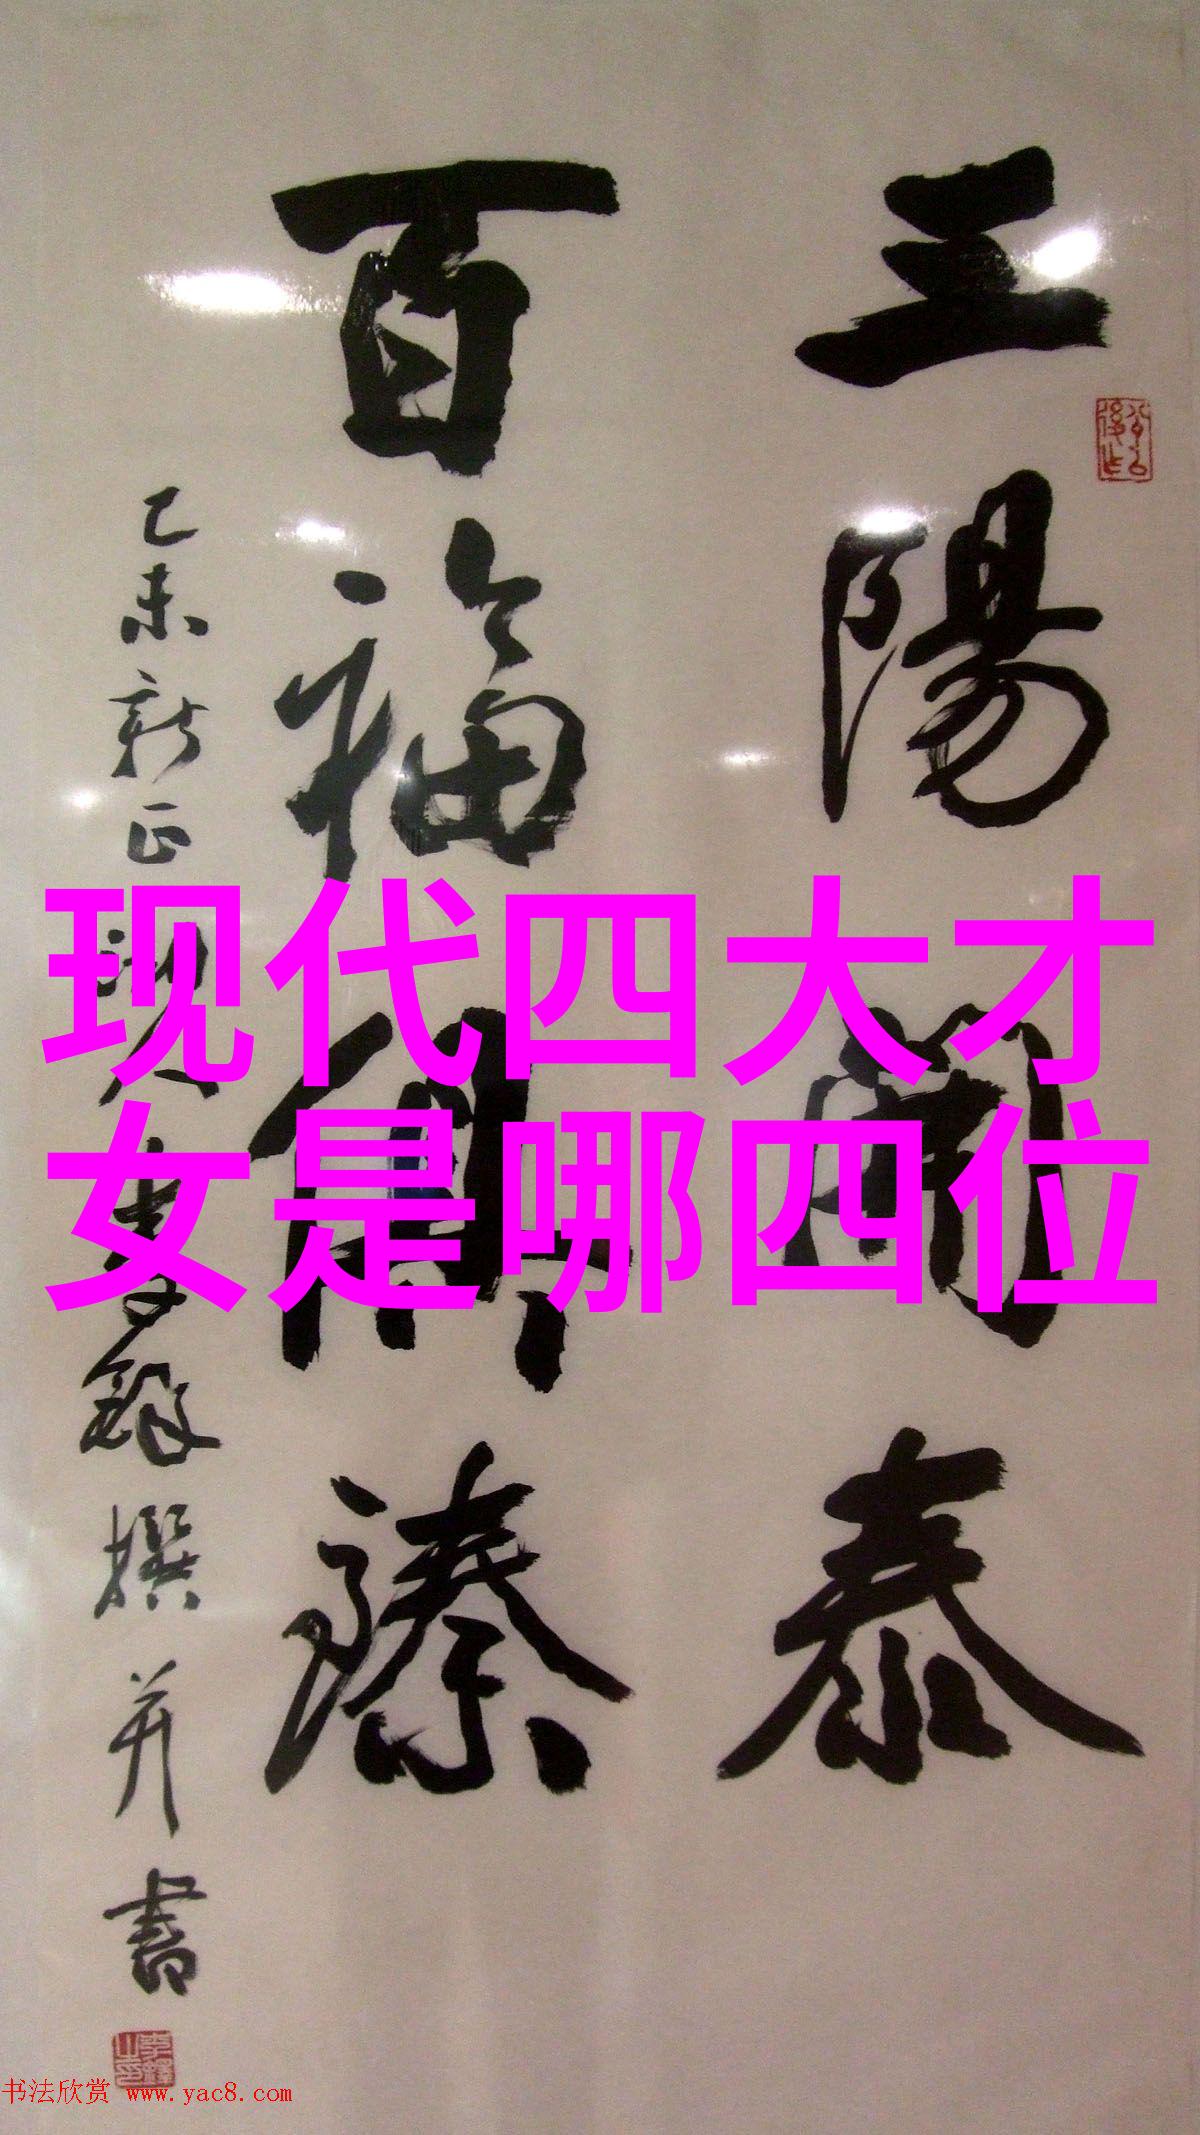 三陽開泰
百福具臻
乙未新正
撰并書
现代四大才
女是哪四位
书法欣赏 www.yac8.com